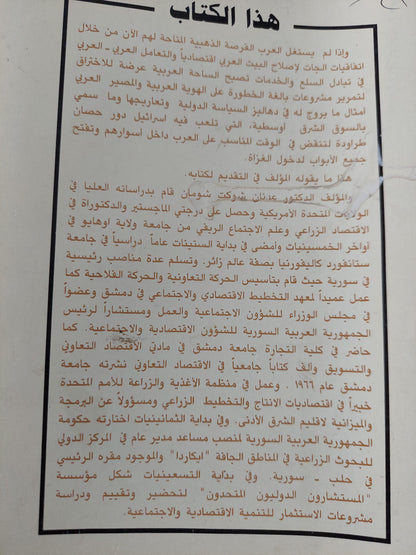 هذا الكتاب
وإذا لم يستغل العرب الفرصة الذهبية المتاحة لهم الآن من خلال
اتفاقيات الجات لإصلاح البيت العربي اقتصادياً والتعامل العربي ـ العربي
في تبادل السلع والخدمات تصبح الساحة العربية عرضة للاختراق
لتمرير مشروعات بالغة الخطورة على الهوية العربية والمصير العربي
أمثال ما يروج له في دهاليز السياسة الدولية وتعاريجها وما سمي
بالسوق الشرق أوسطية، التي تلعب فيه اسرائيل دور حصان
طراودة لتنقض في الوقت المناسب على العرب داخل أسوارهم وتفتح
جميع الأبواب لدخول الغزاة.
هذا ما يقوله المؤلف في التقديم لكتابه.
والمؤلف الدكتور عدنان شوكت شومان قام بدراساته العليا في
الولايات المتحدة الأمريكية وحصل على درجتي الماجستير والدكتوراة في
الاقتصاد الزراعي وعلم الاجتماع الريفي من جامعة ولاية اوهايو في
أواخر الخمسينيات وأمضى في بداية الستينات عاماً دراسياً في جامعة
ستانفورد كاليفورنيا بصفة عالم زائر. وتسلم عدة مناصب رئيسية
في سورية حيث قام بتأسيس الحركة التعاونية والحركة الفلاحية كما
عمل عميداً لمعهد التخطيط الاقتصادي والاجتماعي في دمشق وعضواً
في مجلس الوزراء للشؤون الاجتماعية والعمل ومستشاراً لرئيس
الجمهورية العربية السورية للشؤون الاقتصادية والاجتماعية. كما
حاضر في كلية التجارة جامعة دمشق في مادتي الاقتصاد التعاوني
والتسويق وألف كتاباً جامعياً في الاقتصاد التعاوني نشرته جامعة
دمشق عام ١٩٦٦ . وعمل في منظمة الأغذية والزراعة للأمم المتحدة
خبيراً في اقتصاديات الانتاج والتخطيط الزراعي ومسؤولاً عن البرمجة
والميزانية لاقليم الشرق الأدنى. وفي بداية الثمانينيات اختارته حكومة
الجمهورية العربية السورية لمنصب مساعد مدير عام في المركز الدولي
للبحوث الزراعية في المناطق الجافة "ايكاردا" والموجود مقره الرئيسي
في حلب ـ سورية. وفي بداية التسعينيات شكل مؤسسة
"المستشارون الدوليون المتحدون" لتحضير وتقييم ودراسة
مشروعات الاستثمار للتنمية الاقتصادية والاجتماعية.